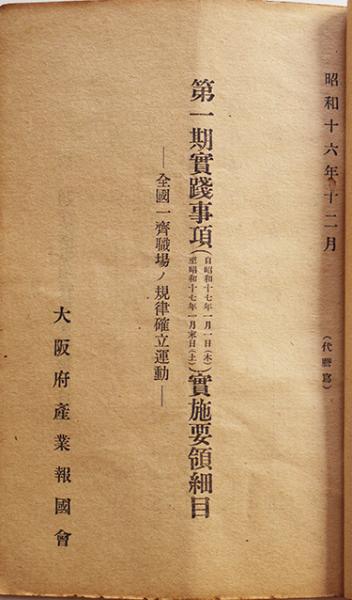 昭和十六年十二月
(代謄寫)
第一期實踐事項(自昭和十七年一月一日(木)至昭和十七年一月末日(土))實施要領細目
―全國一齊職場ノ規律確立運動―
大阪府產業報國會